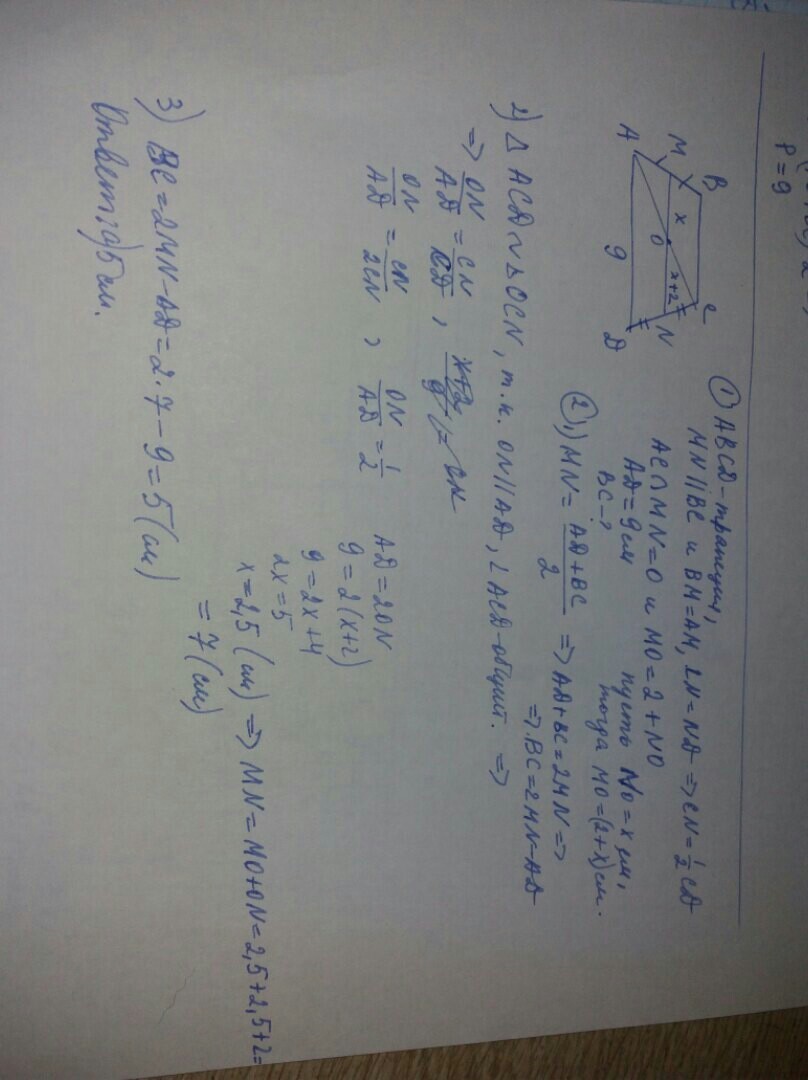 P = 9
① ABCD - трапеция,
MN || BC и BM = AM, CN = ND => CN = 1/2 CD
AC ∩ MN = O и MO = 2 + NO
AD = 9 см
BC - ?
пусть NO = x см,
тогда MO = (2 + x) см.
B
C
M
x
O
x+2
N
A
9
D
② 1) MN = (AD + BC)/2 => AD + BC = 2MN =>
=> BC = 2MN - AD
2) △ ACD ~ △ OCN, т.к. ON || AD, ∠ ACD - общий. =>
=> ON/AD = CN/CD,
ON/AD = CN/2CN , ON/AD = 1/2
AD = 2ON
9 = 2(x+2)
9 = 2x + 4
2x = 5
x = 2,5 (см) => MN = MO + ON = 2,5 + 2,5 + 2 =
= 7 (см)
3) BC = 2MN - AD = 2 · 7 - 9 = 5 (см)
Ответ: 5 см.